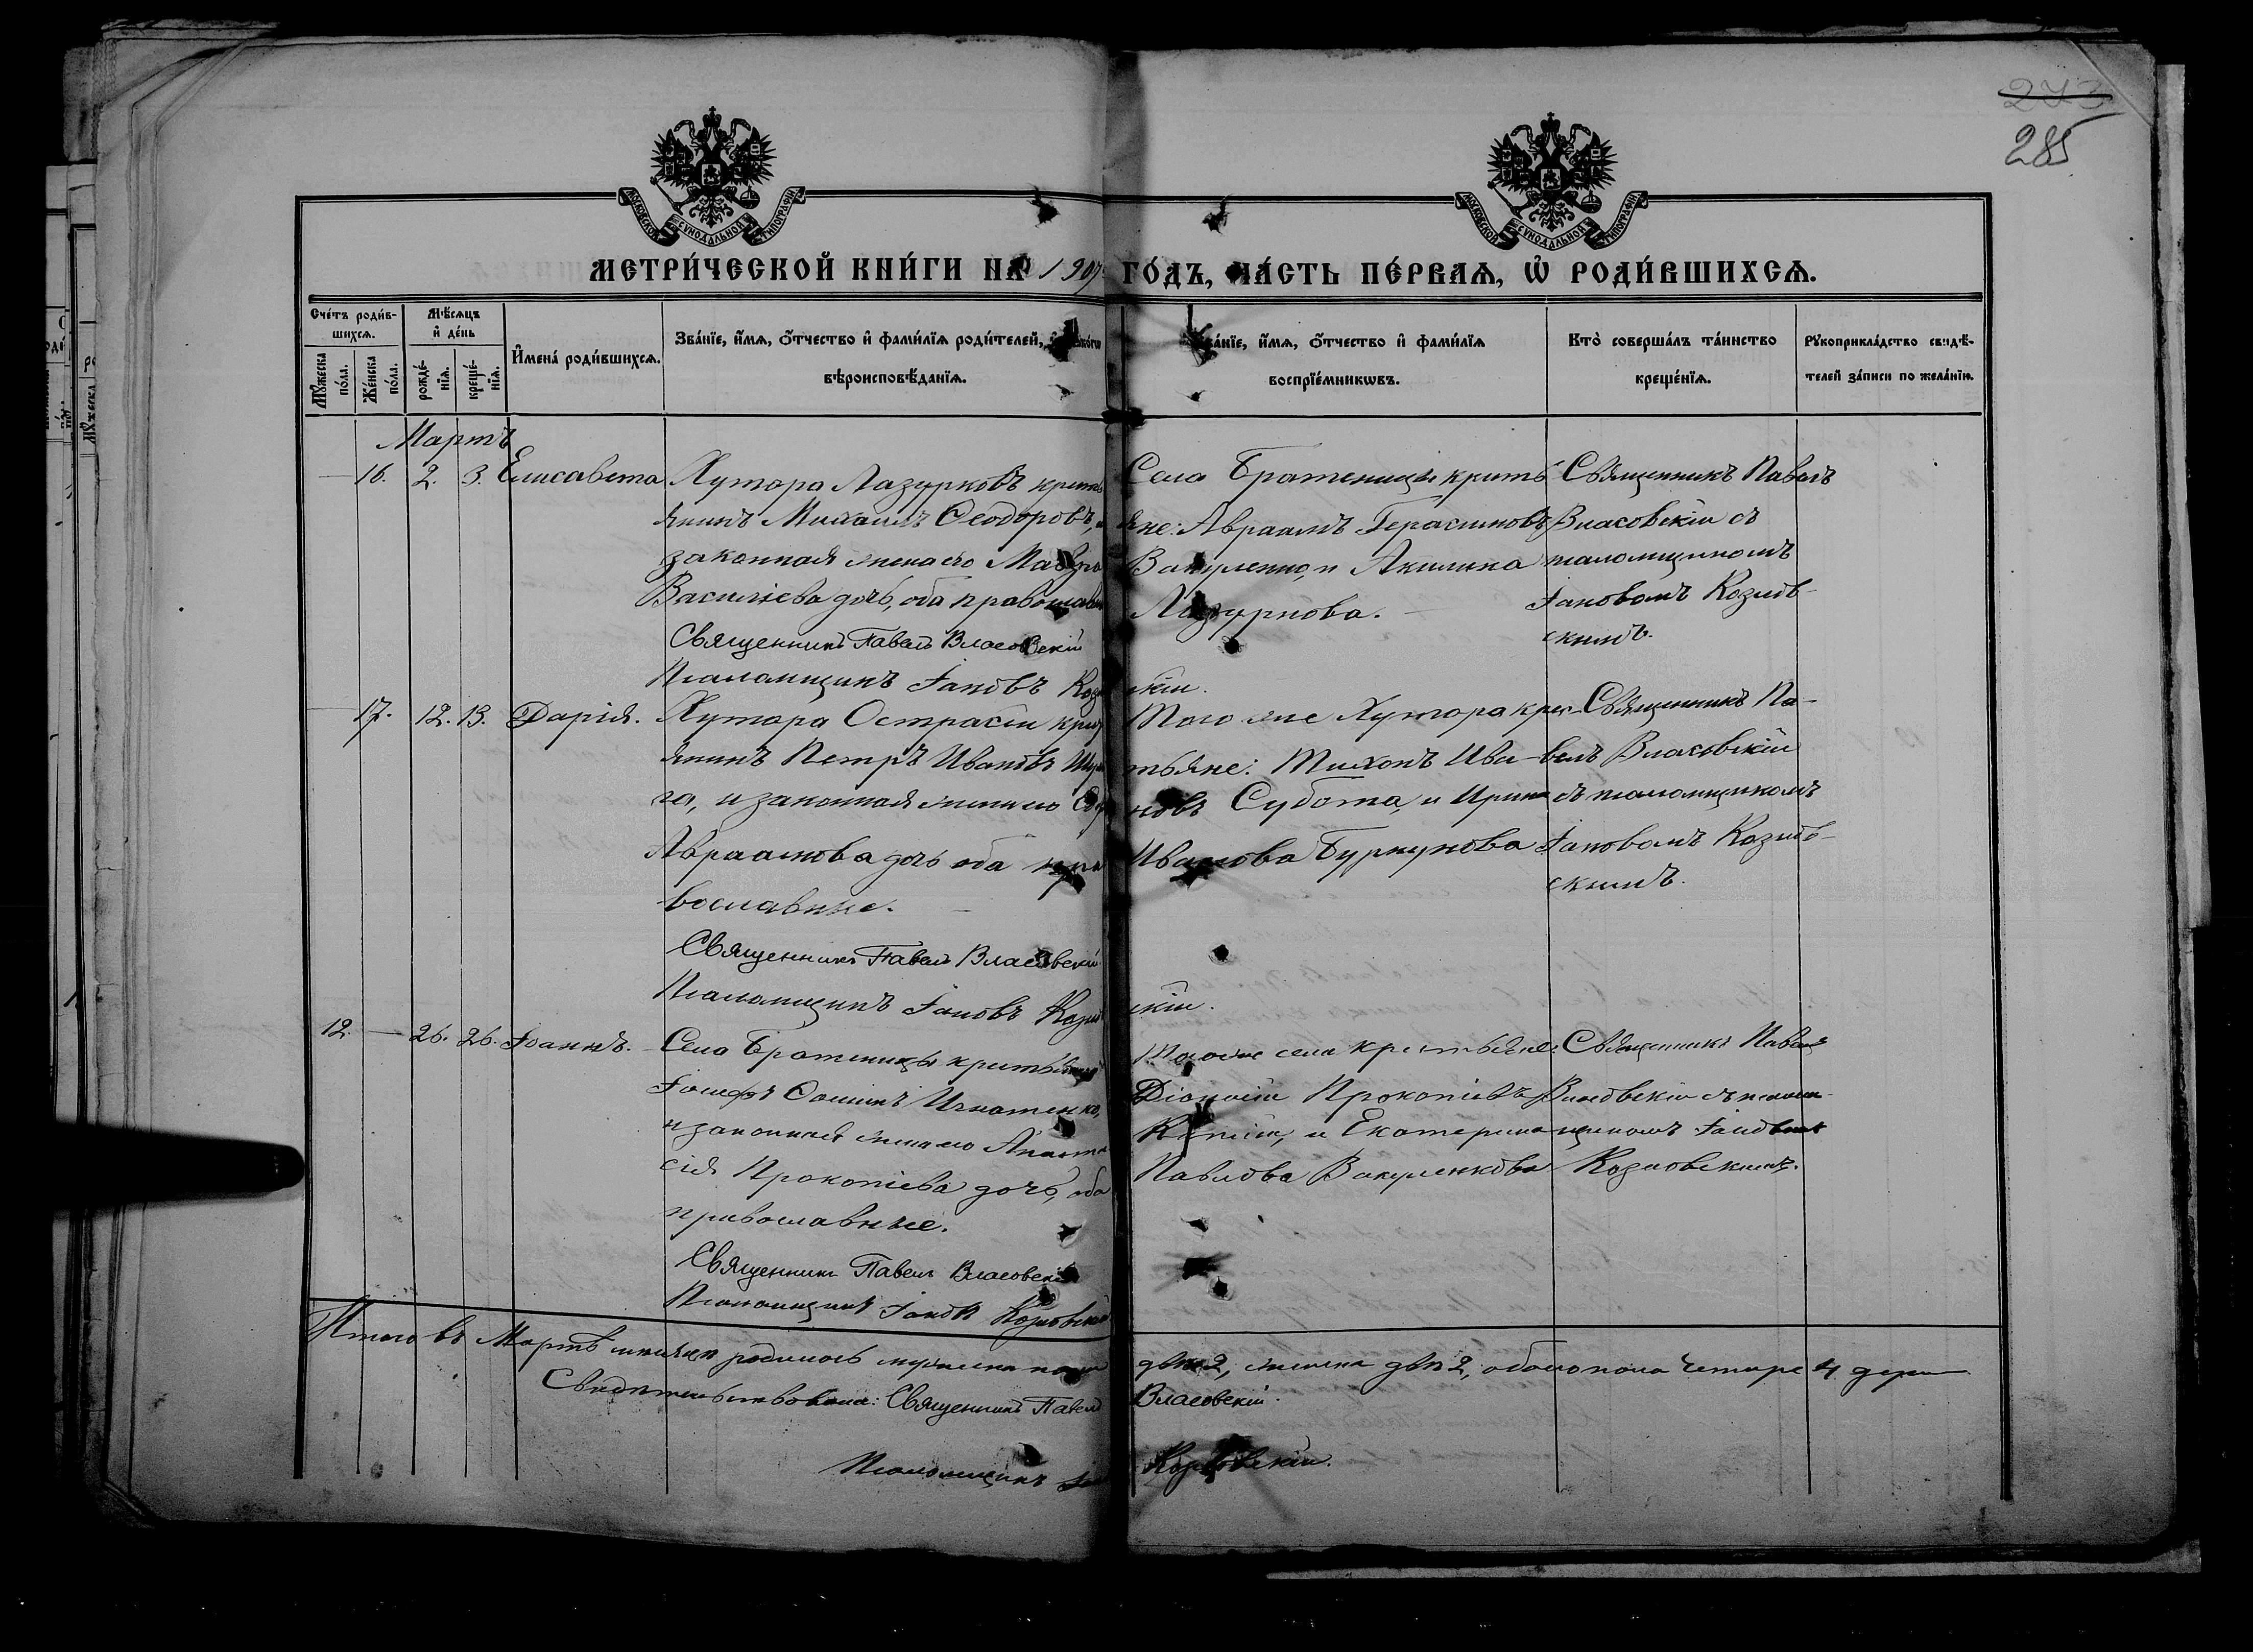 273
285
МОСКОВСКОЙ СѴНОДАЛЬНОЙ ТИПОГРАФІИ
МОСКОВСКОЙ СѴНОДАЛЬНОЙ ТИПОГРАФІИ
МЕТРИ́ЧЕСКОЙ КНИ́ГИ НА 1907 ГО́ДЪ, ЧА́СТЬ ПЕ́РВАѦ, Ѡ РОДИ́ВШИХСѦ.
Счетъ родив-
шихсѧ.
Мꙋжеска
пола.
Женска
пола.
Мѣсѧцъ
и день
рожде-
нїѧ.
креще-
нїѧ.
Имена родившихсѧ.
Званїе, имѧ, отчество и фамилїѧ родителей,
вѣроисповѣданїѧ.
Званїе, имѧ, отчество и фамилїѧ
воспрїемникѡвъ.
Кто совершалъ таинство
крещенїѧ.
Рꙋкоприкладство свидѣ-
телей записи по желанїю.
Мартъ
16. 2. 3. Елисавета
Хутора Лазурковъ кресть
янинъ Михаилъ Ѳеодоровъ, и
законная жена его Мавра
Василіева дочь, оба православ
Священникъ Павелъ Власовскій
Псаломщикъ Іаковъ
Села Братеницы кресть
яне: Авраамъ Герасимовъ
Вакуленко, и Акилина
Лазуркова.
Священникъ Павелъ
Власовскій съ
псаломщикомъ
Іаковомъ Козлов-
скимъ.
17. 12. 13. Дарія.
Хутора крест
янинъ Петръ Ивановъ
га, и законная жена его
Авраамова дочь оба пра
вославные.
Священникъ Павелъ Власовскій
Псаломщикъ Іаковъ Козлов
скій.
Того же Хутора крес-
тьяне: Тихонъ Ива-
новъ Субота, и Ирина
Иванова Буркунова
Священникъ Па-
велъ Власовскій
съ псаломщикомъ
Іаковомъ Козлов-
скимъ.
12. — 26. 26. Іоаннъ.
Села Братеницы крестьянинъ
Іосифъ Игнатенко,
и законная жена его Анаста
сія Прокопіева дочь, оба
православные.
Священникъ Павелъ Власовскій
Псаломщикъ Іаковъ Козловскій
Того же села крестьяне:
Прокопіевъ
и Екатерина
Павлова Вакуленкова
Священникъ Павелъ
Власовскій съ псалом-
щикомъ Іаковомъ
Козловскимъ.
Итого въ Мартѣ мѣсяцѣ родилось мужеска пола два 2, женска двѣ 2, обоего пола четыре 4 душ
Свидѣтельствовали: Священникъ Павелъ Власовскій.
Псаломщикъ Козловскій.